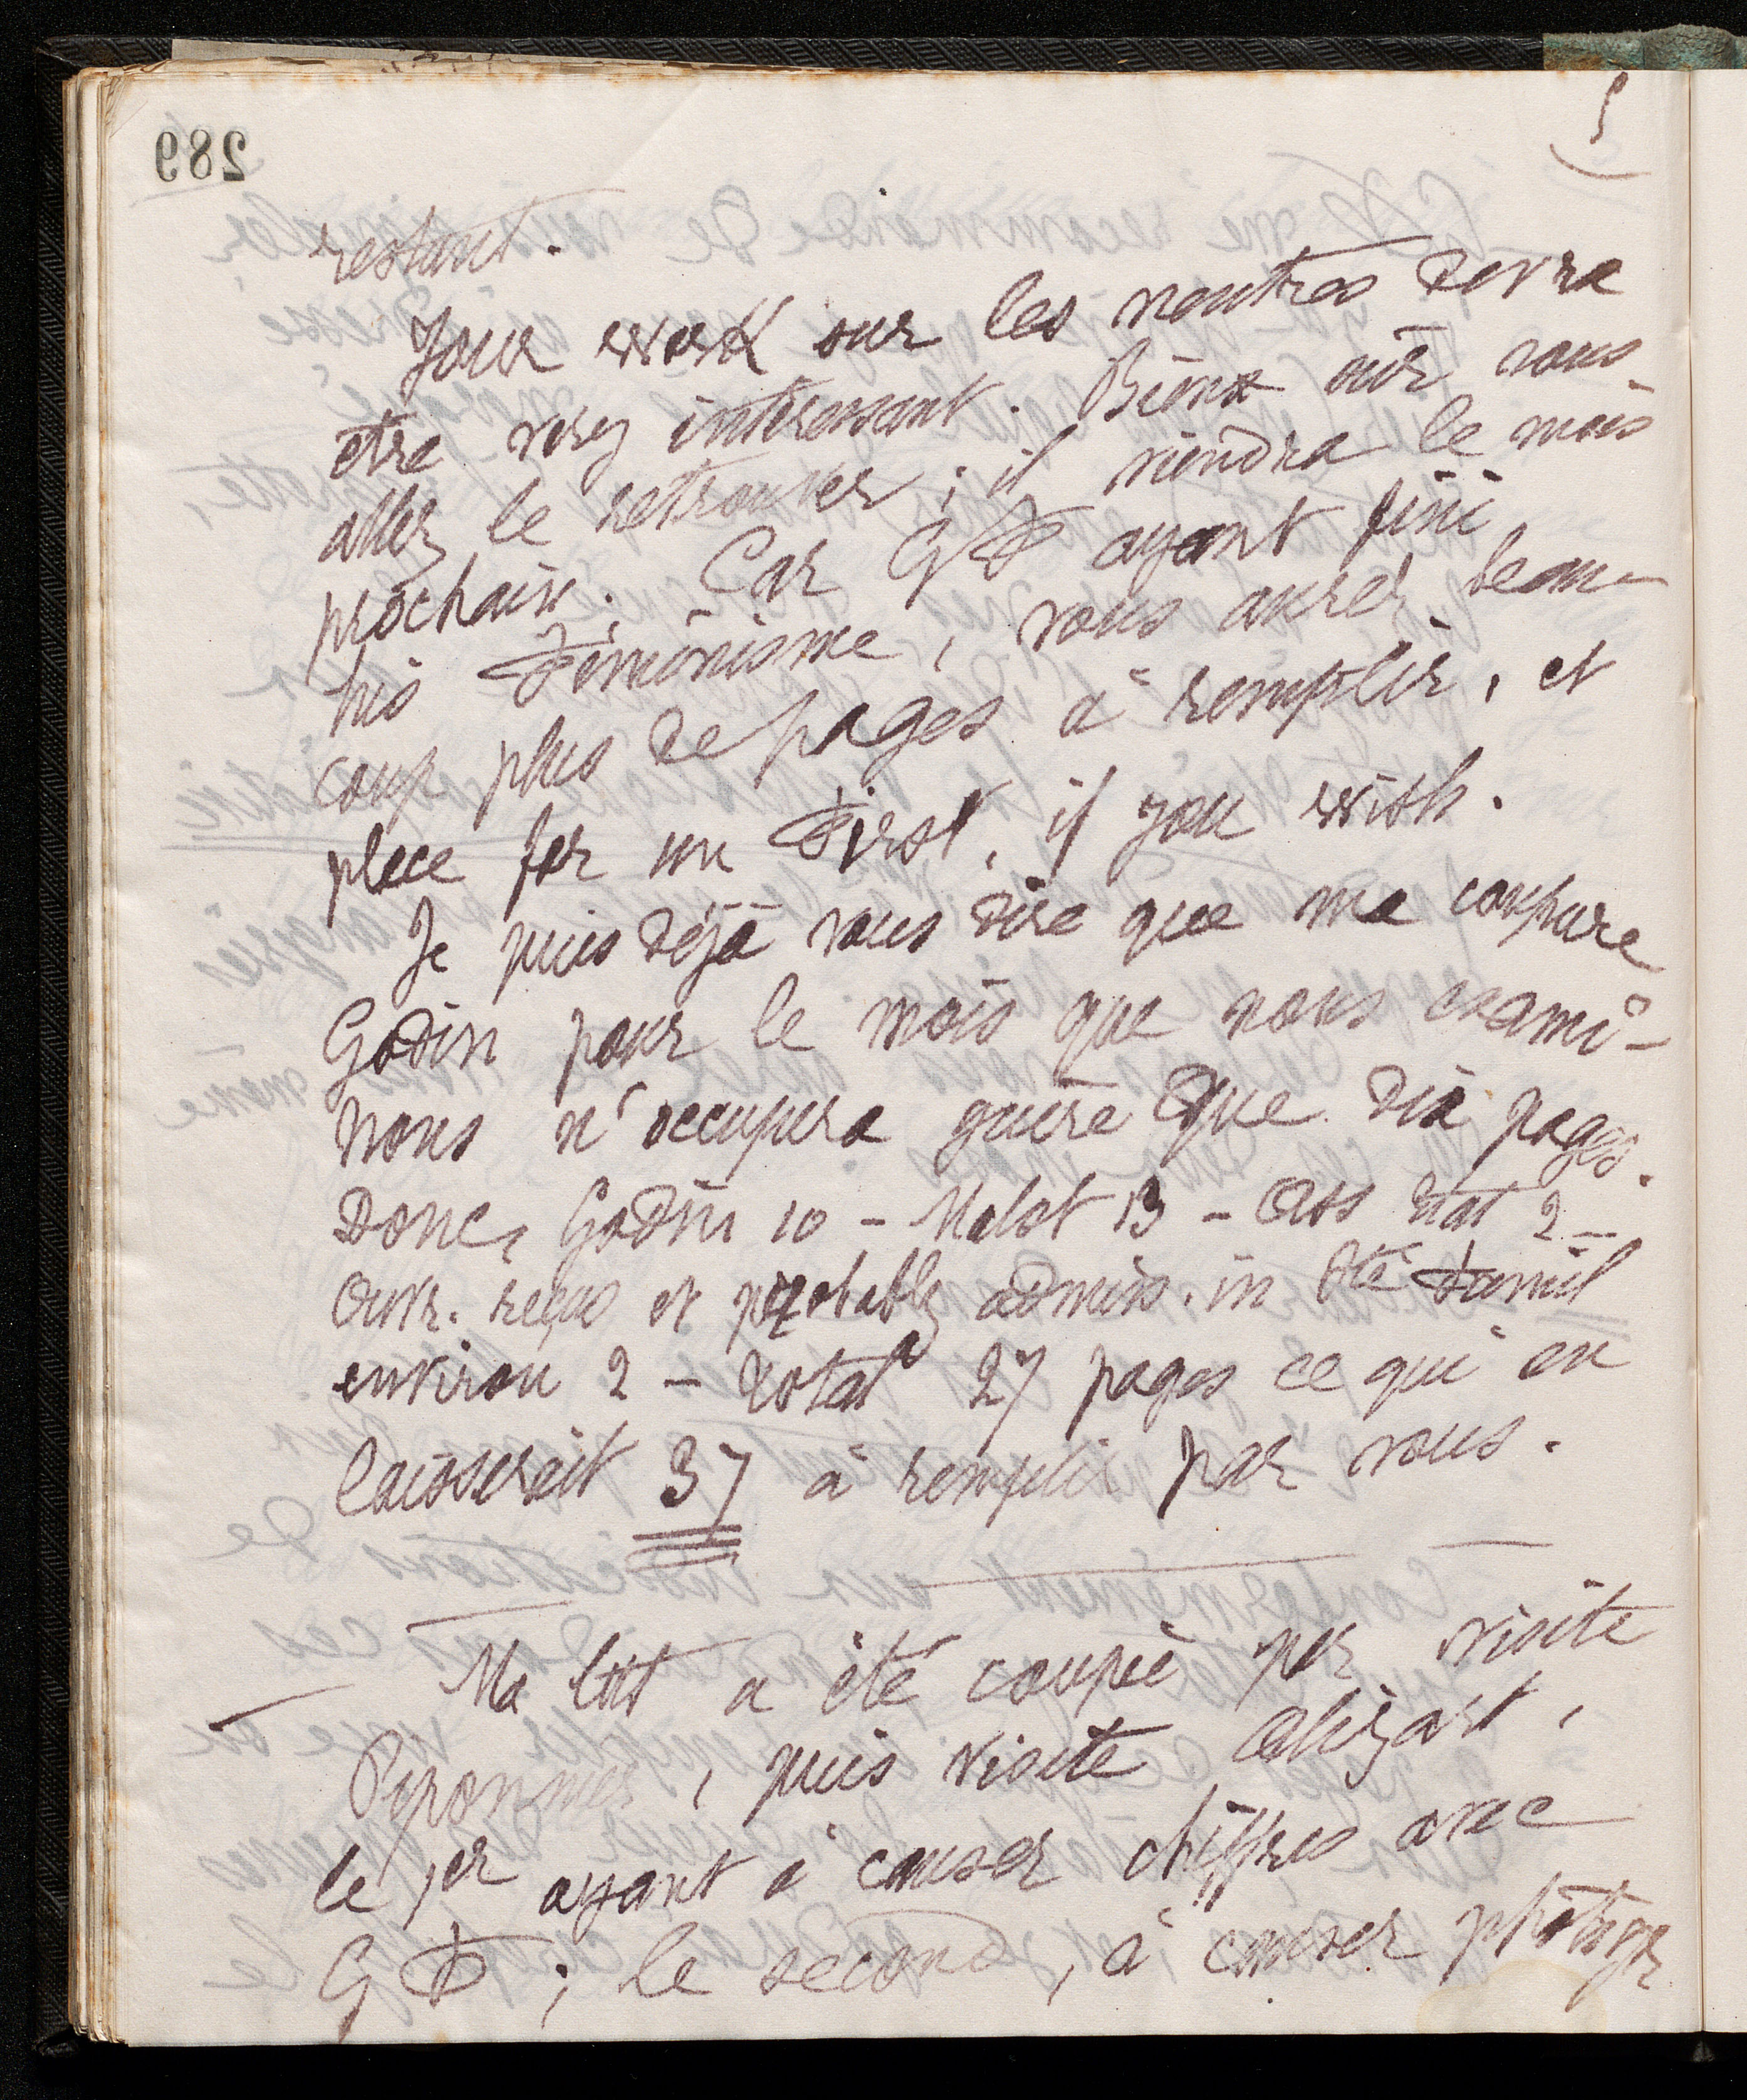 289
5
restant.
Your work sur les neutres devra
être very intéressant. Bien sûr vous
allez le retrouver ; il viendra le mois
prochain. Car GD ayant fini
his Féminisme, vous aurez beau-
coup plus de pages à remplir, et
place for un First, if you wish.
Je puis déjà vous dire que ma coupure
Godin pour le mois que nous exami-
nons n'occupera guère que dix pages.
Donc, Godin 10 - Malet 13 - Ass nat 2 -
Ouvr. reçus et probably admis. in Sté Famil
environ 2 - total 27 pages ce qui en
laisserait 37 à remplir par vous.
Ma lett a été coupée par visite
Piponnier, puis visite Alizart,
le 1er ayant à causer chiffres avec
GD ; le second, à causer photogr